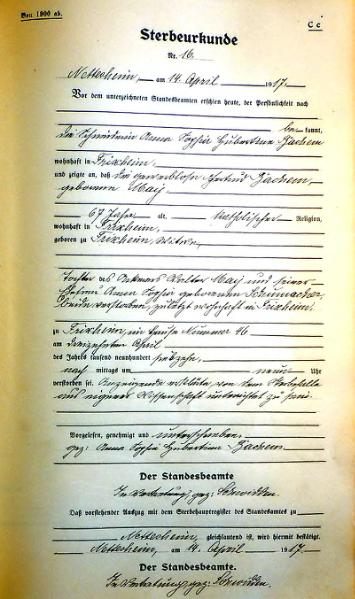 Von 1900 ab.
C e
Sterbeurkunde
Nr. 16.
Nettersheim, am 14. April 1917.
Vor dem unterzeichneten Standesbeamten erschien heute, der Persönlichkeit nach
be kannt,
die Schneiderin Anna Sophia Hubertine Zachem
wohnhaft in Frixheim,
und zeigte an, daß die gewerblose Zachem,
geborenen May
67 Jahre alt, katholischer Religion,
wohnhaft in Frixheim,
geboren zu Frixheim, Witwe,
Tochter des Ackerers Walter May und seiner
Ehefrau Anna Sophia geborenen Schumacher
beide verstorben, zuletzt wohnhaft in Frixheim,
zu Frixheim, im Hause Nummer 46
am dreizehnten April
des Jahrs tausend neunhundert siebzehn,
nach mittags um neun Uhr
verstorben sei. Anzeigende erklärte, von dem Sterbefalle
aus eigener Wissenschaft unterrichtet zu sein.
Vorgelesen, genehmigt und unterschrieben,
gez: Anna Sophia Hubertine Zachem
Der Standesbeamte
In Vertretung gez:
Daß vorstehender Auszug mit dem Sterbehauptregister des Standesamtes zu
Nettersheim gleichlautend ist, wird hiermit bestätigt.
Nettersheim, am 14. April 1917.
Der Standesbeamte.
In Vertretung gez: